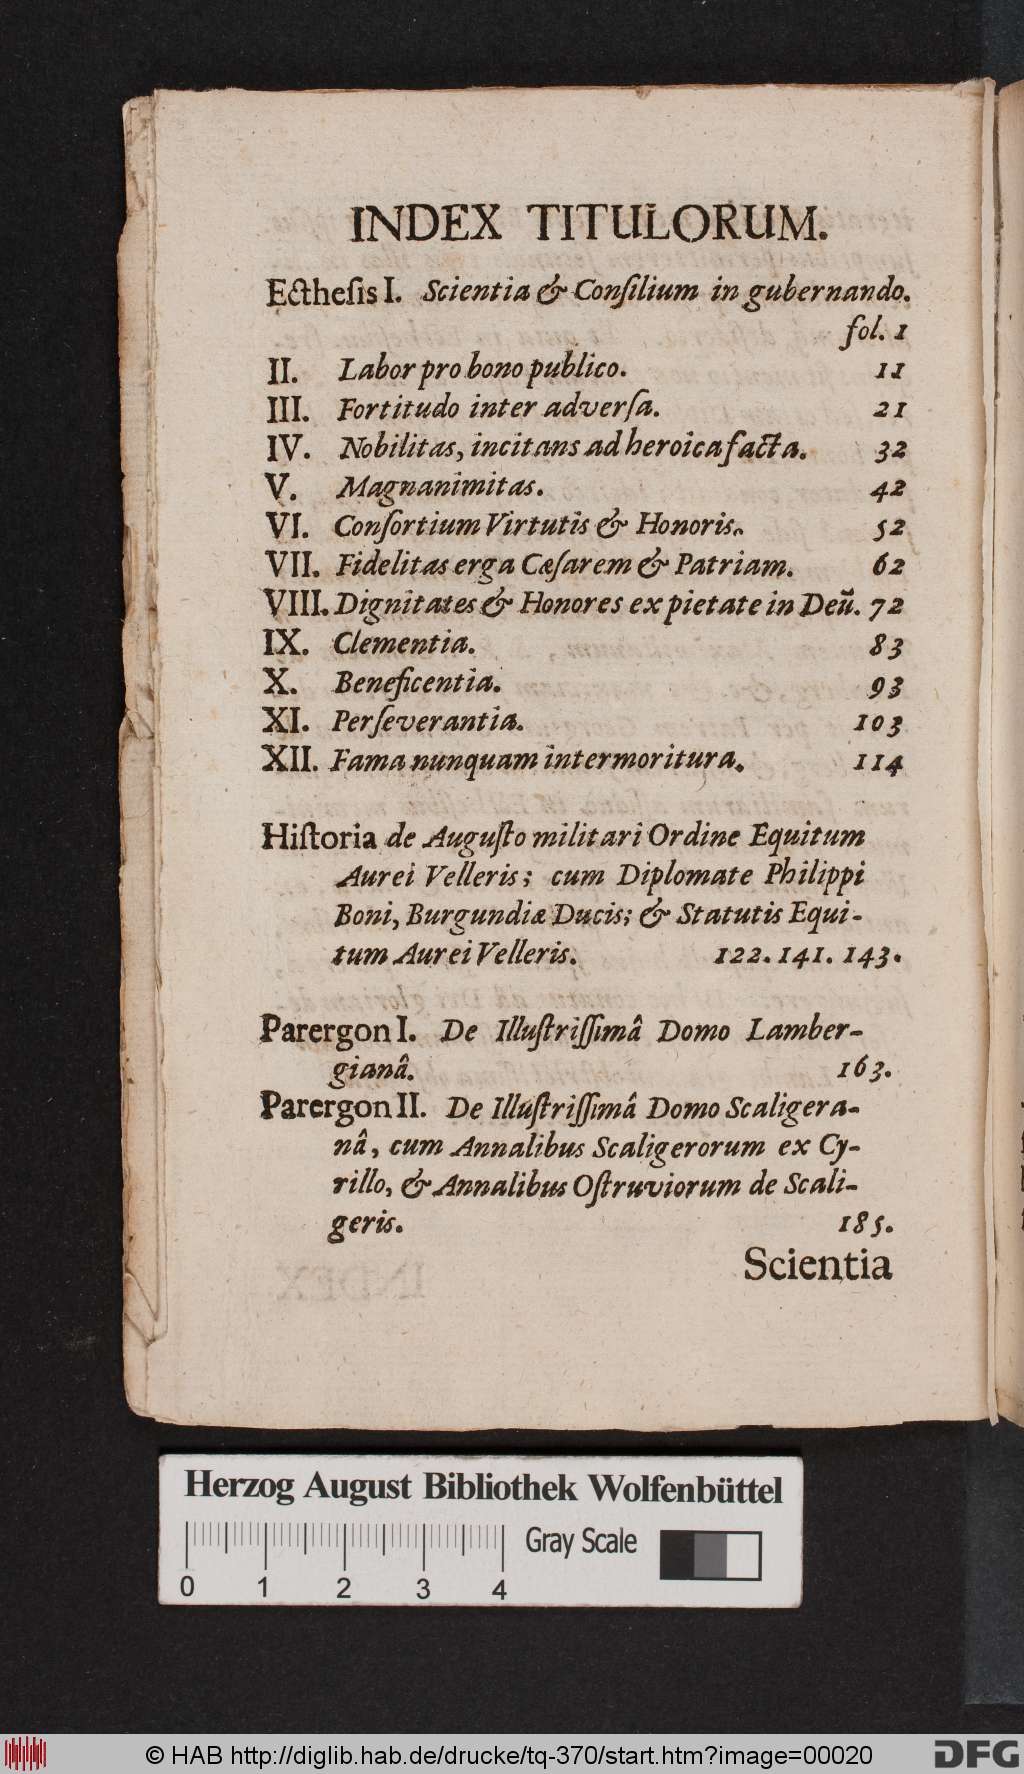 INDEX TITULORUM.
Ecthesis I. Scientia & Consilium in gubernando.
fol. 1
II. Labor pro bono publico. 11
III. Fortitudo inter adversa. 21
IV. Nobilitas, incitans ad heroica facta. 32
V. Magnanimitas. 42
VI. Consortium Virtutis & Honoris. 52
VII. Fidelitas erga Cæsarem & Patriam. 62
VIII. Dignitates & Honores ex pietate in Deũ. 72
IX. Clementia. 83
X. Beneficentia. 93
XI. Perseverantia. 103
XII. Fama nunquam intermoritura. 114
Historia de Augusto militari Ordine Equitum
Aurei Velleris; cum Diplomate Philippi
Boni, Burgundiæ Ducis; & Statutis Equi-
tum Aurei Velleris. 122. 141. 143.
Parergon I. De Illustrissimâ Domo Lamber-
gianâ. 163.
Parergon II. De Illustrissimâ Domo Scaligera-
nâ, cum Annalibus Scaligerorum ex Cy-
rillo, & Annalibus Ostruviorum de Scali-
geris. 185.
Scientia
Herzog August Bibliothek Wolfenbüttel
Gray Scale
0 1 2 3 4
© HAB http://diglib.hab.de/drucke/tq-370/start.htm?image=00020
DFG